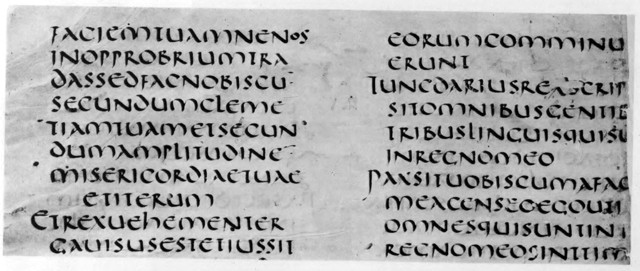 FACIEMTUAMNENOS
INOPPROBRIUMTRA
DASSEDFACNOBISCU
SECUNDUMCLEME
TIAMTUAMETSECUN
DUMAMPLITUDINE
MISERICORDIAETUAE
ETITERUM
ETREXUEHEMENTER
GAUISUSESTETIUSSIT
EORUMCOMMINU
ERUNT
TUNCDARIUSREXSCRIP
SITOMNIBUSGENTIB
TRIBUSLINGUISQUISU
INREGNOMEO
PAXSITUOBISCUMAFAC
MEACENSEGEGOUTI
OMNESQUISUNTIN
REGNOMEOSINTTIM